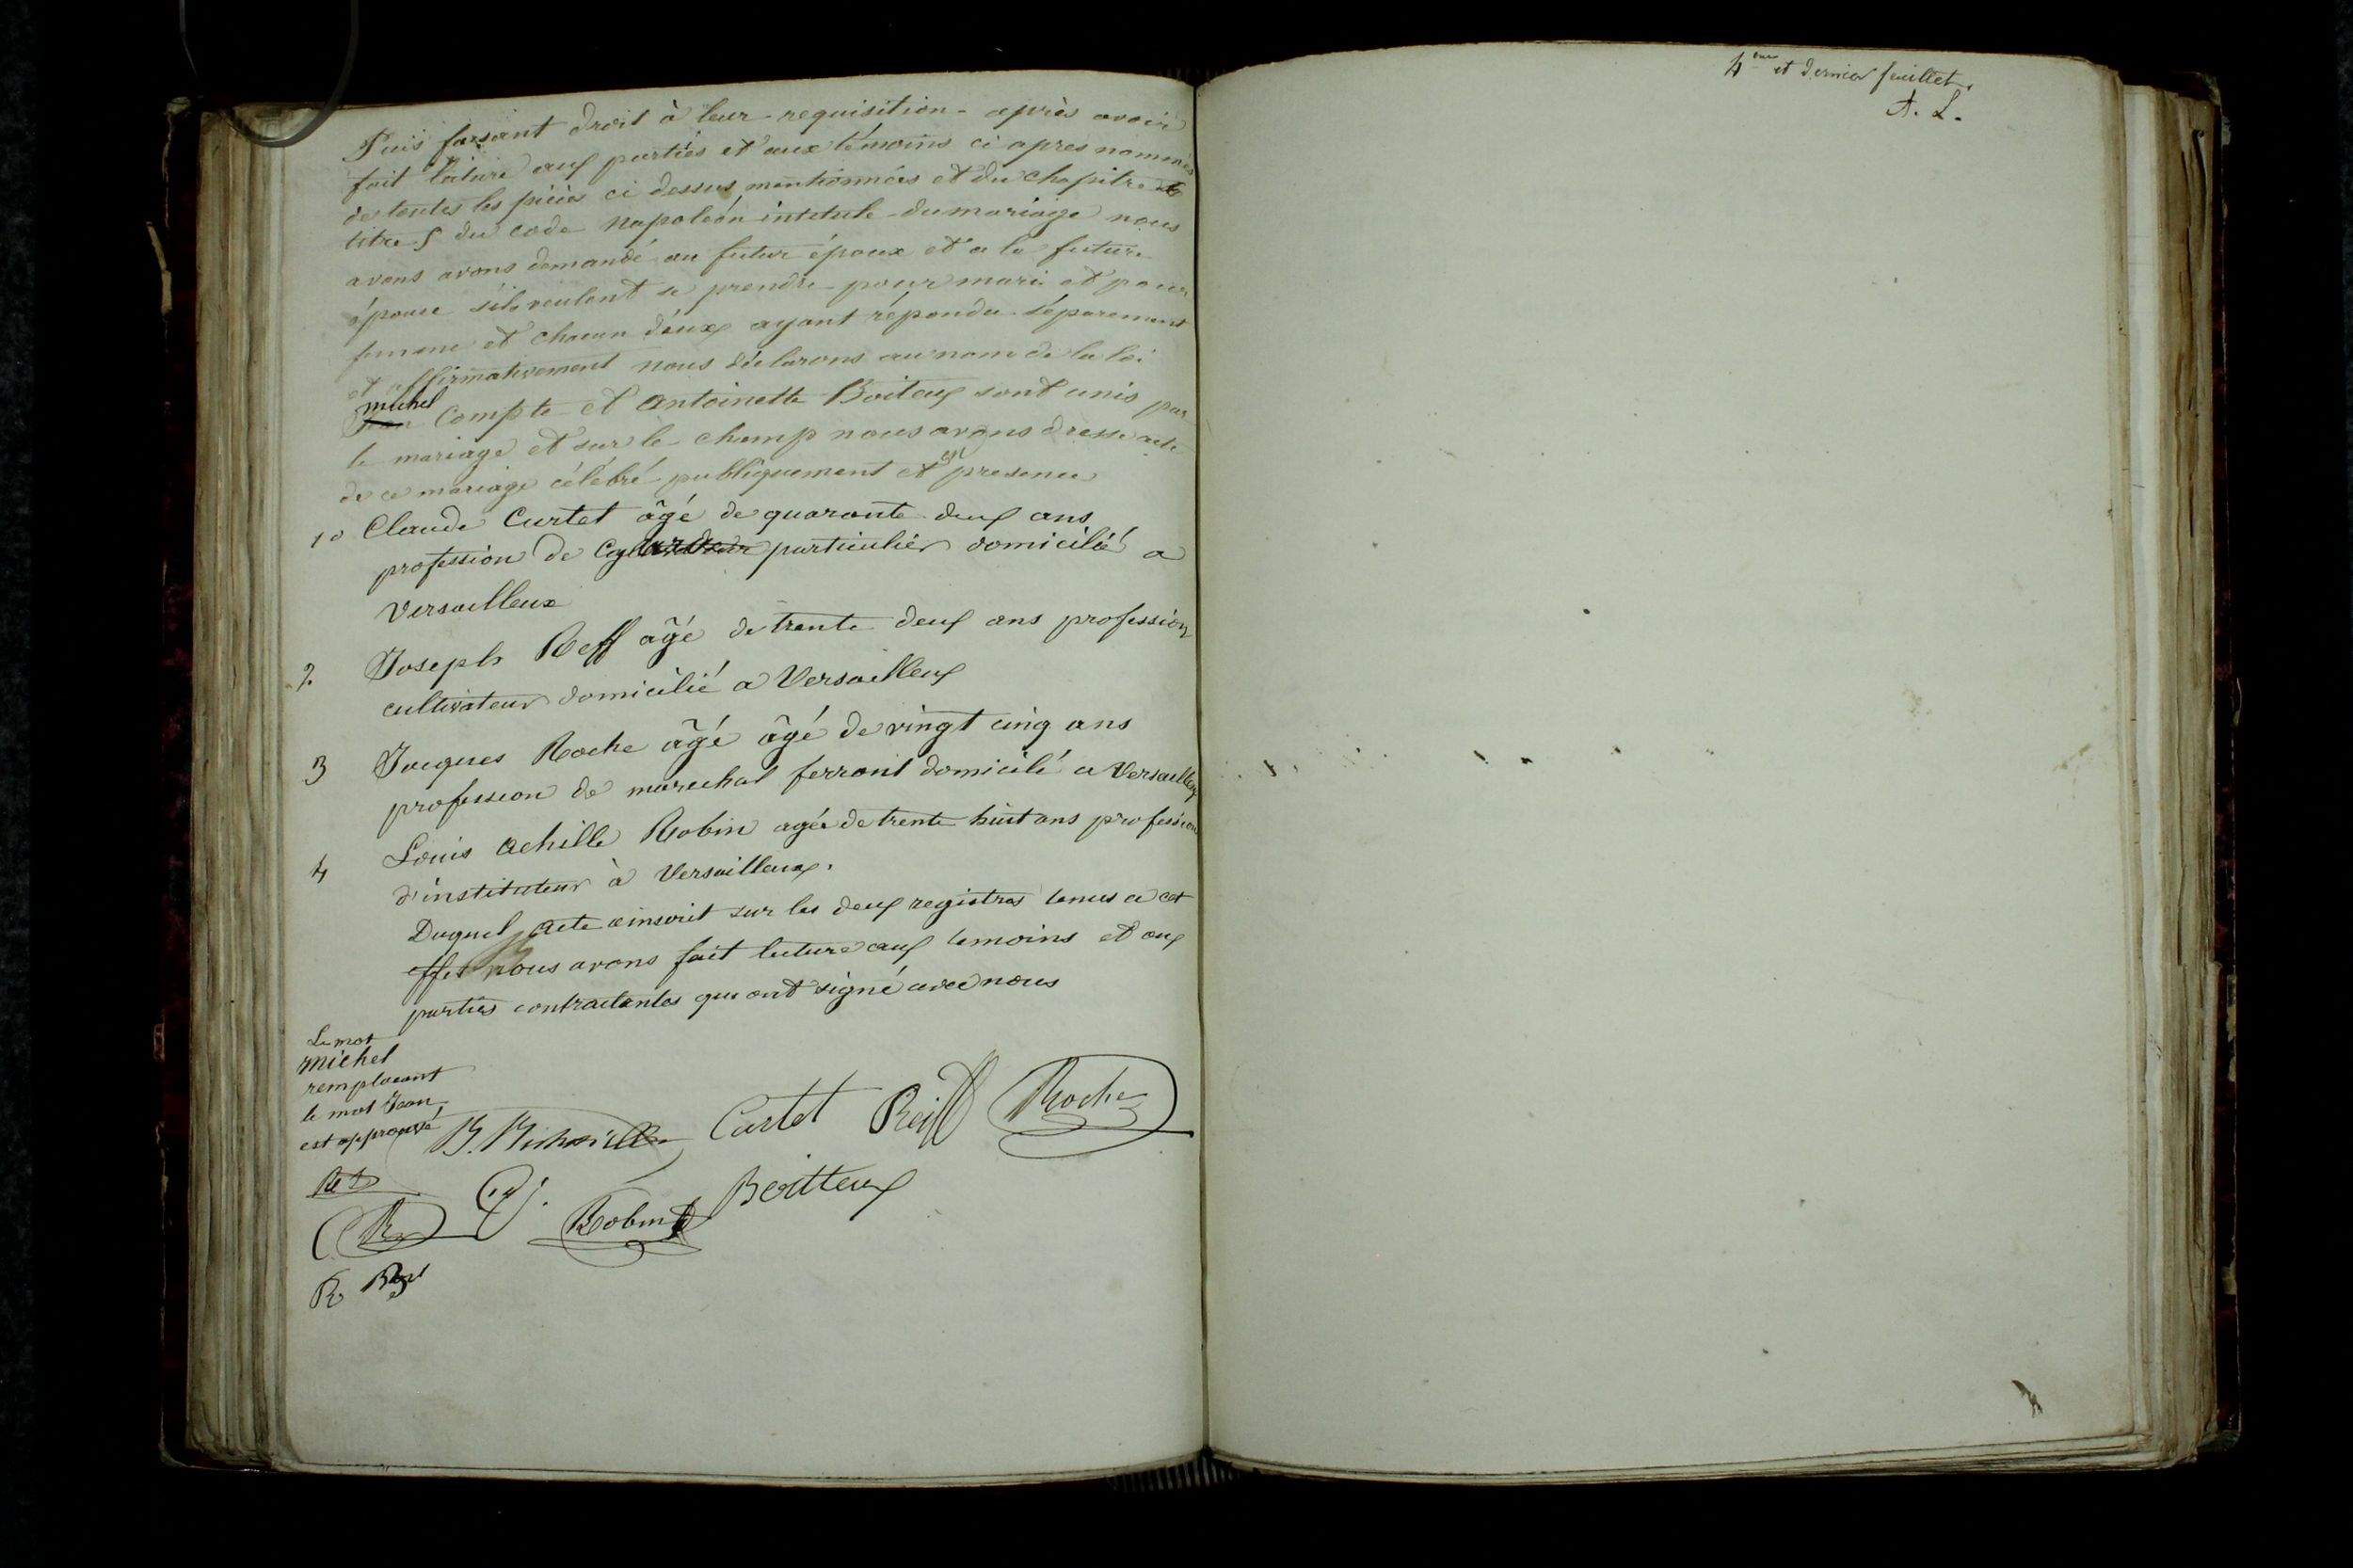 Puis faisant droit à leur requisition après avoir
fait lecture aux parties et aux témoins ci apres nommés
de toutes les pièces ci dessus mentionnées et du chapitre
titre 5 du code Napoléon intitule du mariage nous
avons avons demandé au futur époux et a la future
épouse s'ils veulent se prendre pour mari et pour
femme et chacun d'eux ayant répondu séparement
et affirmativement nous déclarons au nom de la loi
michel
Jean Compte et Antoinette Boiteux sont unis par
le mariage et sur le champ nous avons dressé acte
de ce mariage célébré publiquement et en presence
1o Claude Curtet âgé de quarante deux ans
profession de garde particulier domicilié a
Versailleux
2 Joseph Reff âgé de trente deux ans profession
cultivateur domicilié a Versailleux
3 Jacques Roche âgé âgé de vingt cinq ans
profession de marechal ferrant domicilé a Versailleux
4 Louis Achille Robin agée de trente huit ans profession
d'instituteur à Versailleux.
Duquel acte inscrit sur les deux registres tenus a cet
effet nous avons fait lecture aux temoins et aux
parties contractantes qui ont signé avec nous
Le mot
michel
remplacant
le mot Jean
est approuvé
Curtet Reiff Roche
Robin Boitteux
R
4eme et dernier feuillet.
A. L.